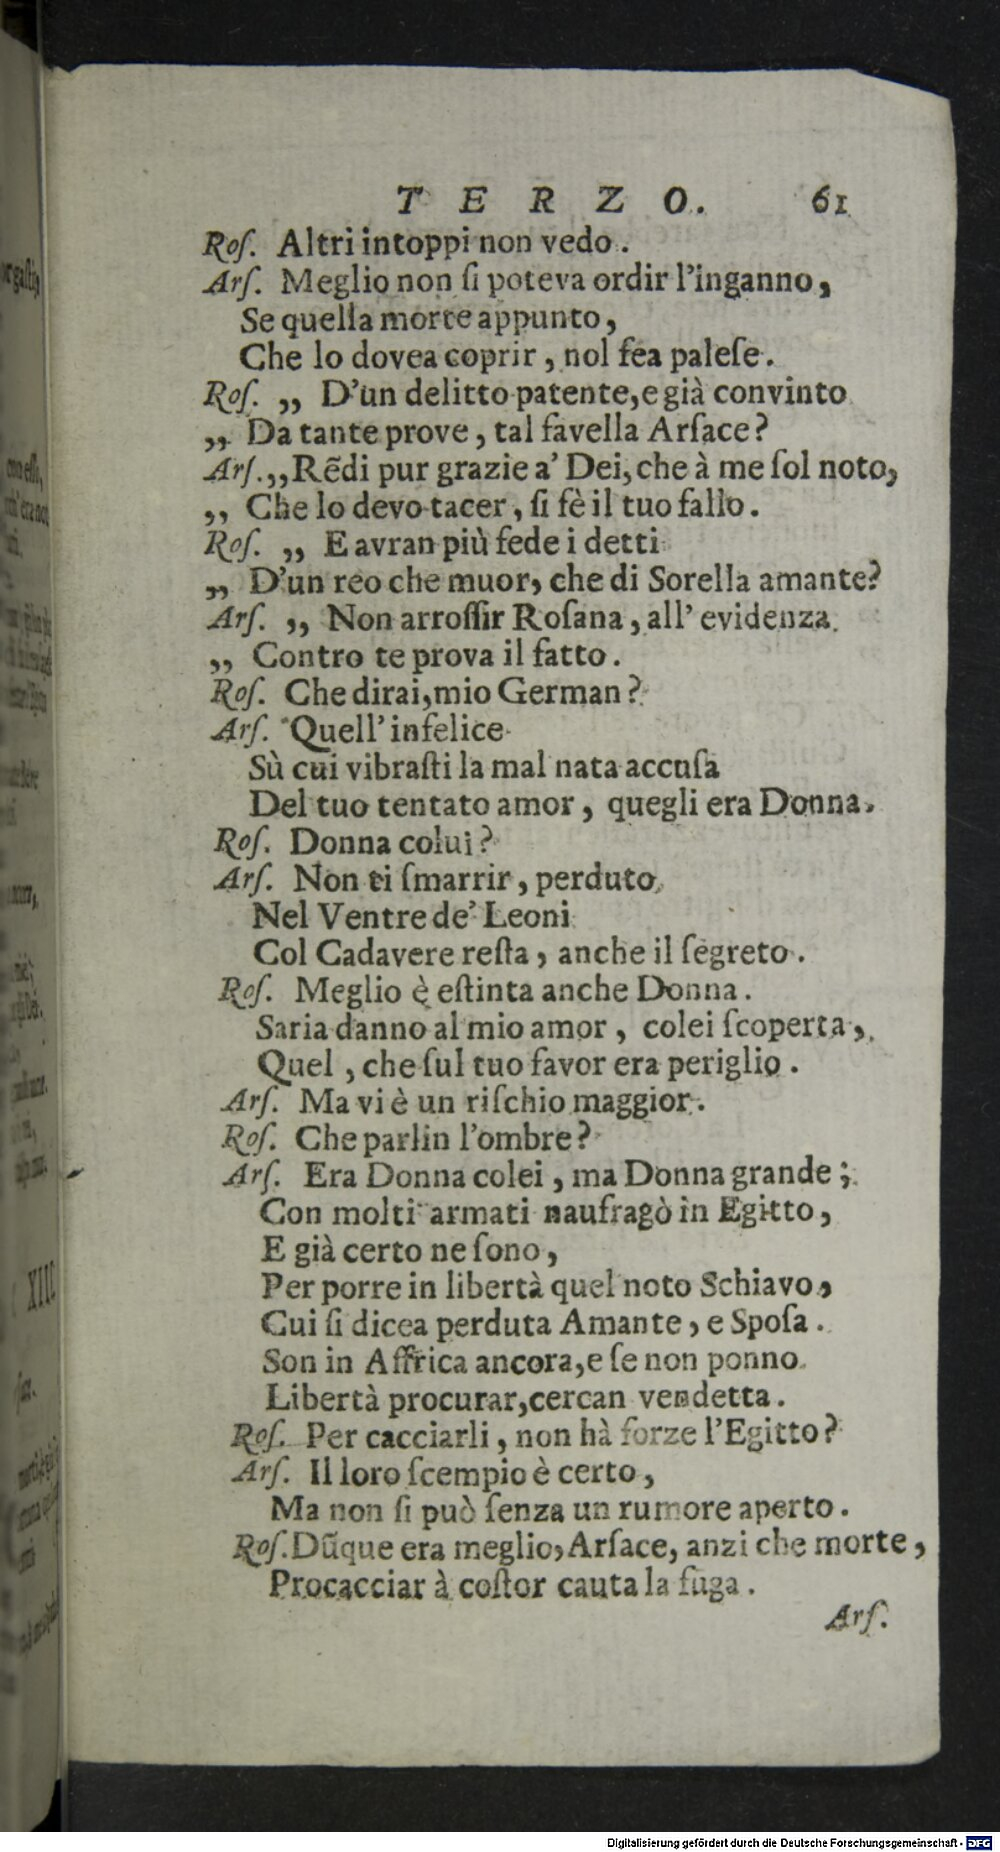 TERZO. 61
Roſ. Altri intoppi non vedo.
Arſ. Meglio non ſi poteva ordir l'inganno,
Se quella morte appunto,
Che lo dovea coprir, nol fea paleſe.
Roſ. ,, D'un delitto patente, e già convinto
,, Da tante prove, tal favella Arſace?
Arſ. ,, Rẽdi pur grazie a' Dei, che à me ſol noto,
,, Che lo devo tacer, ſi fè il tuo fallo.
Roſ. ,, E avran più fede i detti
,, D'un reo che muor, che di Sorella amante?
Arſ. ,, Non arroſſir Roſana, all' evidenza
,, Contro te prova il fatto.
Roſ. Che dirai, mio German?
Arſ. Quell' infelice
Sù cui vibraſti la mal nata accuſa
Del tuo tentato amor, quegli era Donna.
Roſ. Donna colui?
Arſ. Non ti ſmarrir, perduto
Nel Ventre de' Leoni
Col Cadavere reſta, anche il ſegreto.
Roſ. Meglio è eſtinta anche Donna.
Saria danno al mio amor, colei ſcoperta,
Quel, che ſul tuo favor era periglio.
Arſ. Ma vi è un riſchio maggior.
Roſ. Che parlin l'ombre?
Arſ. Era Donna colei, ma Donna grande;
Con molti armati naufragò in Egitto,
E già certo ne ſono,
Per porre in libertà quel noto Schiavo,
Cui ſi dicea perduta Amante, e Spoſa.
Son in Affrica ancora, e ſe non ponno
Libertà procurar, cercan vendetta.
Roſ. Per cacciarli, non hà forze l'Egitto?
Arſ. Il loro ſcempio è certo,
Ma non ſi può ſenza un rumore aperto.
Roſ. Dũque era meglio, Arſace, anzi che morte,
Procacciar à coſtor cauta la fuga.
Arſ.
Digitalisierung gefördert durch die Deutsche Forschungsgemeinschaft - DFG